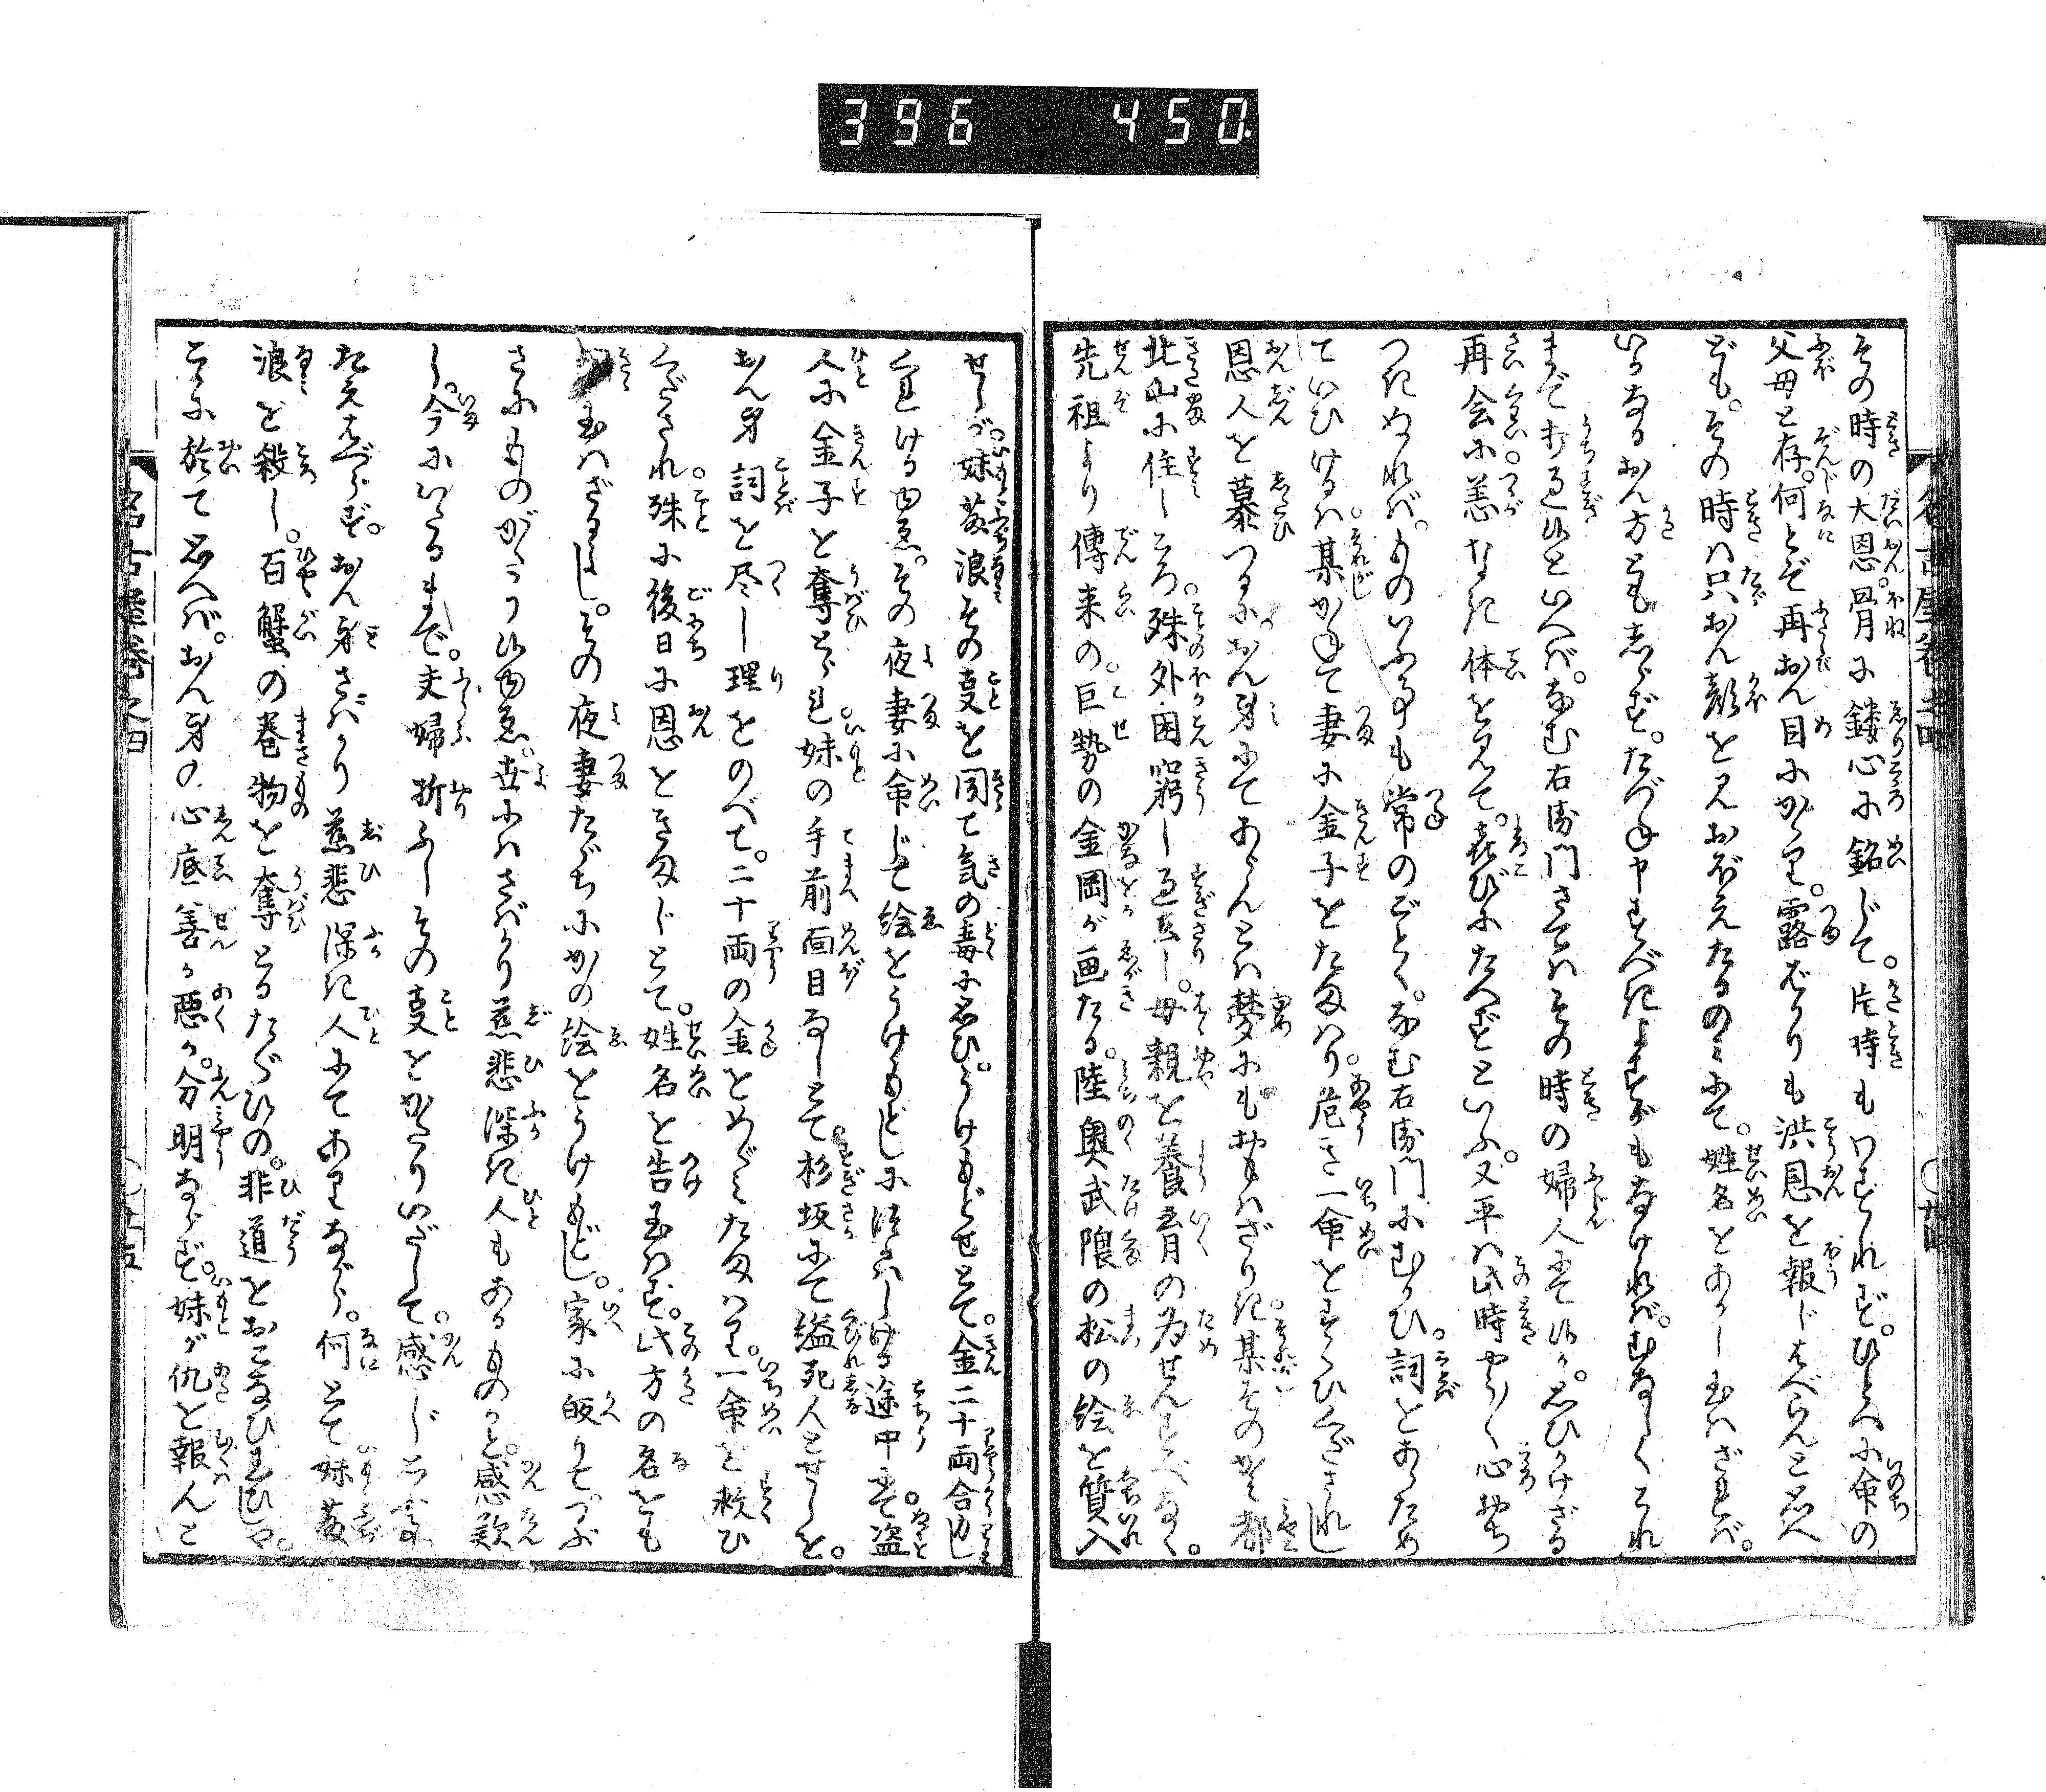 396 450.
その時の大恩。骨に鏤心に銘じて。片時もわすれず。ひとへに命の
父母と存。何とぞ再おん目にかゝり。露ばかりも洪恩を報じはべらんと思へ
ども。その時は只おん顔を見おぼえたるのみにて。姓名をあかし玉はざれば。
いかなるおん方ともしらず。たづね申すべきよすがもなければ。むなしくこれ
まで打過候といへば。なむ右衛門さてはその時の婦人にて候か。思ひかけざる
再会に恙なき体を見て。喜びにたへずといふ。又平は此時やう〱心おち
つきぬれば。ものいふ事も常のごとく。なむ右衛門にむかひ。詞をあらため
ていひけるは。某かねて妻に金子をたまはり。危き一命をすくひくだされし
恩人を慕つるに。おん身にてあらんとは夢にもおもはざりき。某そのかみ都
北山に住しころ。殊外困窮し過去し。母親を養育の為せんすべなく。
先祖より傳来の。巨勢の金岡が画たる。陸奥武隈の松の絵を質入
せしが。妹藤浪その事を聞て気の毒に思ひ。うけもどせとて。金二十両合力し
くれけるゆゑ。その夜妻に命じて絵をうけもどしに遣はしける途中にて。盗
人に金子を奪とられ。妹の手前面目なしとて。杉坂にて縊死んとせしを。
おん身詞を尽し理をのべて。二十両の金をめぐみたまはり。一命を救ひ
くだされ。殊に後日に恩をきまじとて。姓名を告玉はず。此方の名をも
きゝ玉はざるよし。その夜妻たゞちにかの絵をうけもどし。家に皈りてつぶ
さにものがたり候ゆゑ。世にはさばかり慈悲深き人もあるものかと。感歎
し。今にいたるまで。夫婦折ふしその事をかたりいだして。感じこゝろ
たえはべらず。おん身さばかり慈悲深き人にてありながら。何とて妹藤
浪を殺し。百蟹の巻物を奪とるたぐひの。非道をおこなひ玉ひしや。
こゝに於て思へば。おん身の心底善か悪か。分明ならず。妹が仇を報んと